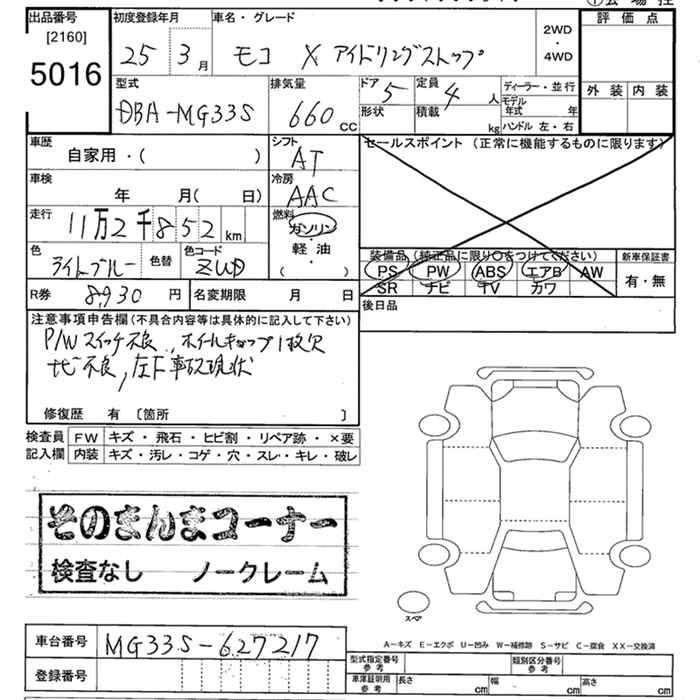 出品番号
[2160]
5016
初度登録年月
25 3月
車名・グレード
モコ X アイドリングストップ
2WD
・
4WD
評価点
外装 内装
型式
DBA-MG33S
排気量
660 CC
ドア 5
形状
定員 4 人
積載 kg
ディーラー・並行
モデル年式 年
ハンドル 左・右
車歴
自家用・( )
シフト
AT
セールスポイント (正常に機能するものに限ります)
車検
年 月( 日)
冷房
AAC
走行
11万2千852 km
燃料
ガソリン
軽・油
( )
色
ライトブルー
色替
色コード
ZWD
装備品 (純正品に限り○をつけてください)
PS PW ABS エアB AW
SR ナビ TV カワ
新車保証書
有・無
R券 8,930 円
名変期限 月 日
後日品
注意事項申告欄(不具合内容等は具体的に記入して下さい)
P/Wスイッチ不良、ホイールキャップ1枚欠
修復歴 有 〔箇所 〕
検査員 FW キズ・飛石・ヒビ割・リペア跡・×要
記入欄 内装 キズ・汚レ・コゲ・穴・スレ・キレ・破レ
そのまんまコーナー
検査なし ノークレーム
スペア
A−キズ E−エクボ U−凹み W−補修跡 S−サビ C−腐食 XX−交換済
車台番号 MG33S-627217
登録番号
型式指定番号
参考
類別区分番号
参考
車庫証明用
参考
長さ cm 幅 cm 高さ cm